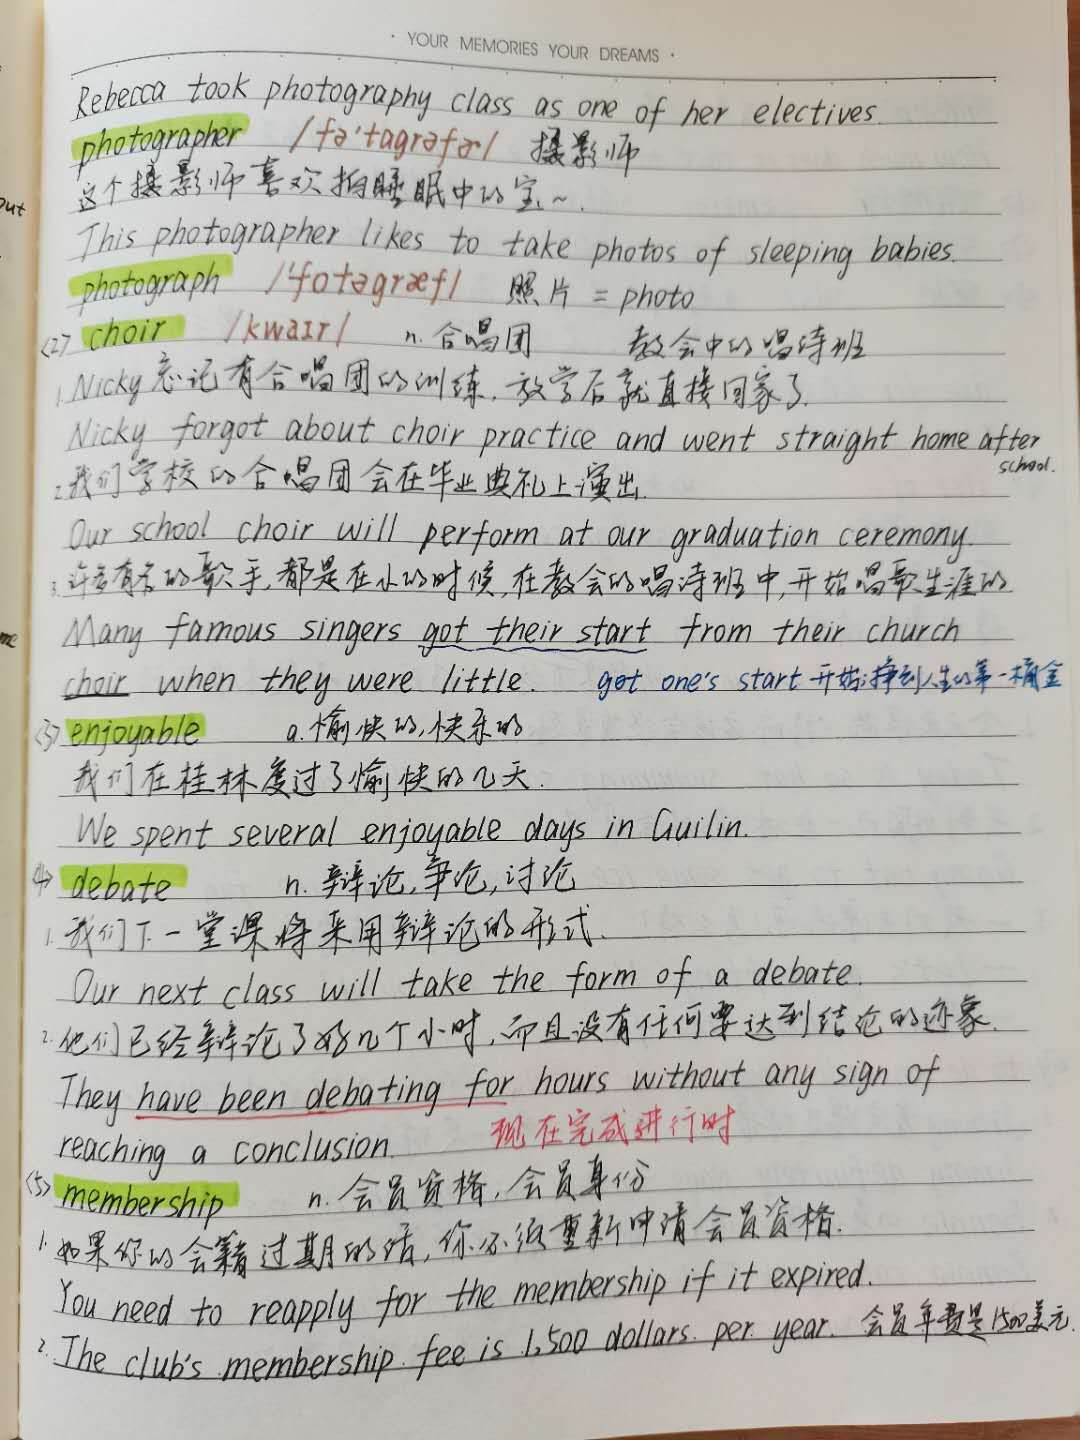 · YOUR MEMORIES YOUR DREAMS ·
Rebecca took photography class as one of her electives.
photographer /fə'tagrəfər/ 摄影师
这个摄影师喜欢拍睡眠中的宝~.
This photographer likes to take photos of sleeping babies.
photograph /'fotəgræf/ 照片 = photo
<2> choir /kwaɪr/ n. 合唱团 教会中的唱诗班
1. Nicky忘记有合唱团的训练, 放学后就直接回家了.
Nicky forgot about choir practice and went straight home after school.
2. 我们学校的合唱团会在毕业典礼上演出.
Our school choir will perform at our graduation ceremony.
3. 许多有名的歌手,都是在小的时候,在教会的唱诗班中,开始唱歌生涯的
Many famous singers got their start from their church
choir when they were little. get one's start 开始;挣到人生的第一桶金
<3> enjoyable a. 愉快的,快乐的
我们在桂林度过了愉快的几天.
We spent several enjoyable days in Guilin.
<4> debate n. 辩论,争论,讨论
1. 我们下一堂课将采用辩论的形式.
Our next class will take the form of a debate.
2. 他们已经辩论了好几个小时,而且没有任何要达到结论的迹象.
They have been debating for hours without any sign of
reaching a conclusion. 现在完成进行时
<5> membership n. 会员资格,会员身份
1. 如果你的会籍过期的话,你必须重新申请会员资格.
You need to reapply for the membership if it expired.
2. The club's membership fee is 1,500 dollars per year. 会员年费是1500美元.
out
me